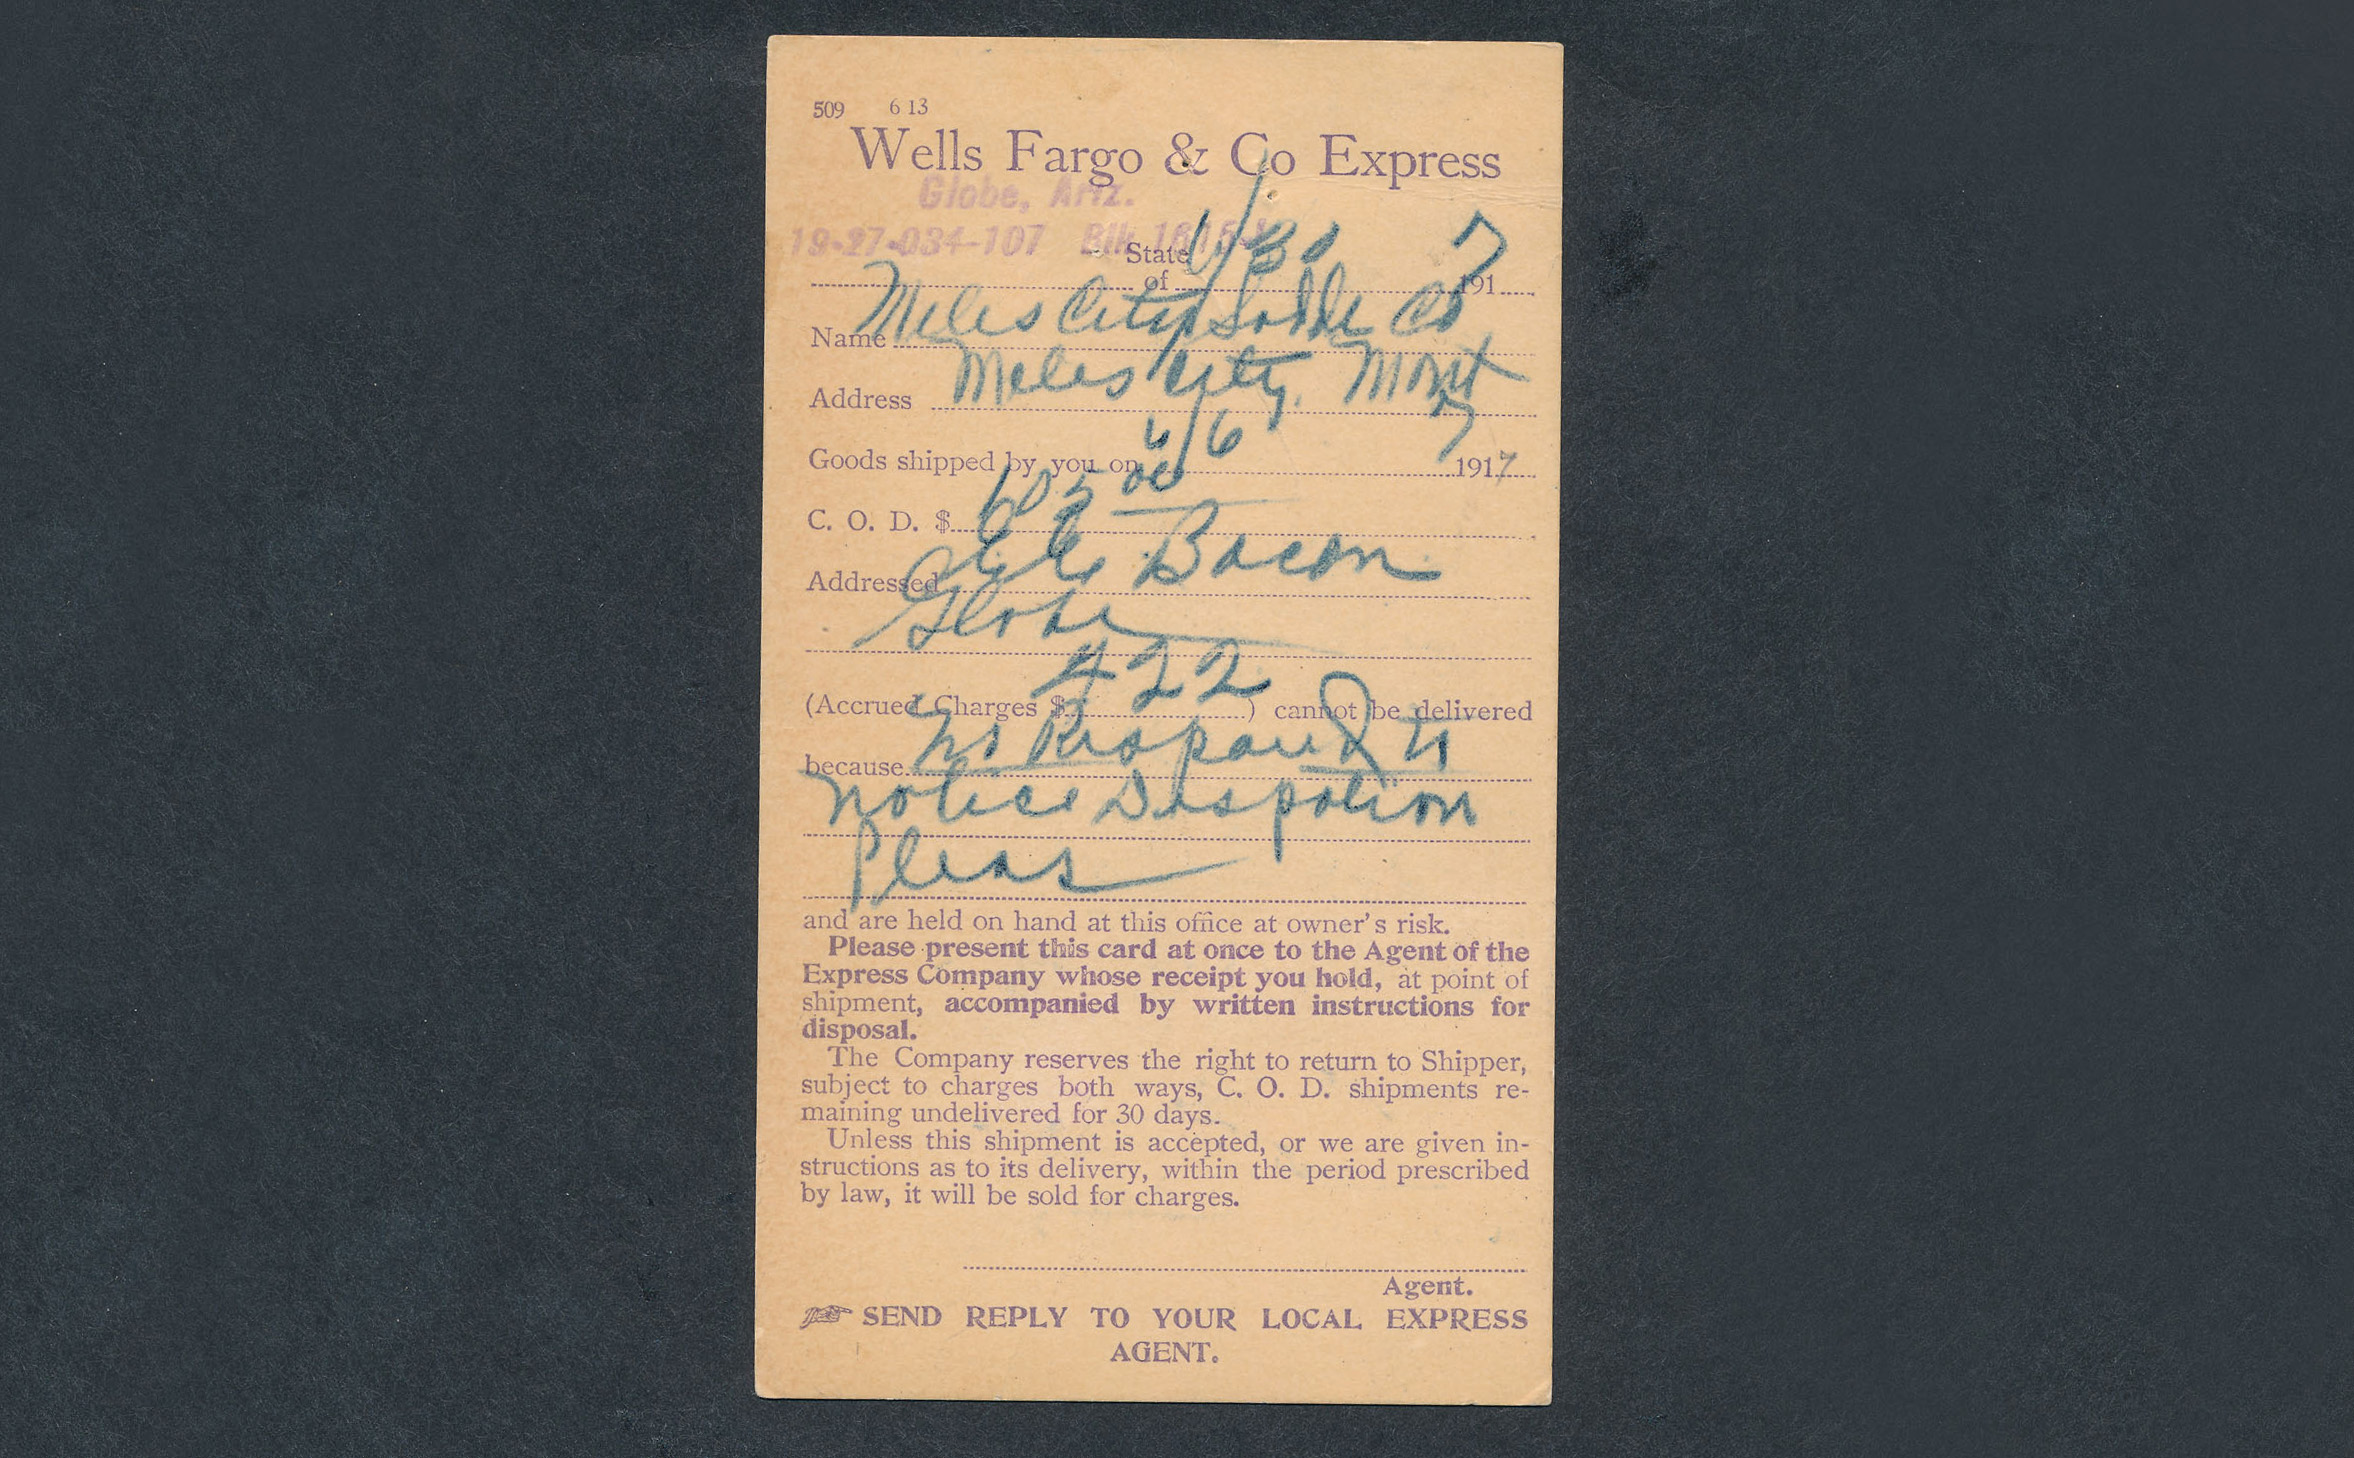 509 6 13
Wells Fargo & Co Express
Globe, Ariz.
19-27-034-107 Blk
State of 6/30 1917
Name Miles City Saddle Co
Address Miles City. Mont
Goods shipped by you on 6/6 1917
C. O. D. $ 60 5
Addressed Bacon
Globe
(Accrued Charges $ 4 22 ) cannot be delivered
because no Respond to
notice Dispotion
Pleas
and are held on hand at this office at owner's risk.
Please present this card at once to the Agent of the
Express Company whose receipt you hold, at point of
shipment, accompanied by written instructions for
disposal.
The Company reserves the right to return to Shipper,
subject to charges both ways, C. O. D. shipments re-
maining undelivered for 30 days.
Unless this shipment is accepted, or we are given in-
structions as to its delivery, within the period prescribed
by law, it will be sold for charges.
Agent.
SEND REPLY TO YOUR LOCAL EXPRESS
AGENT.